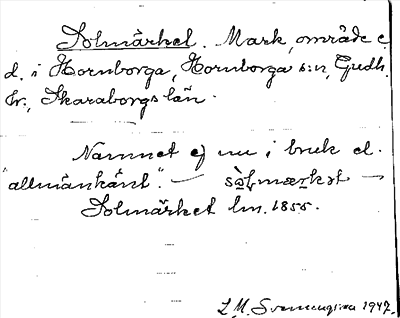 Solmärket. Mark, område e
d. i Hornborga, Hornborga s:n, Gudh.
hr., Skaraborgs län.
Namnet ej nu i bruk el.
"allmänkänt". — —
Solmärket lm. 1855.
L. M. Svennungsson 1947.